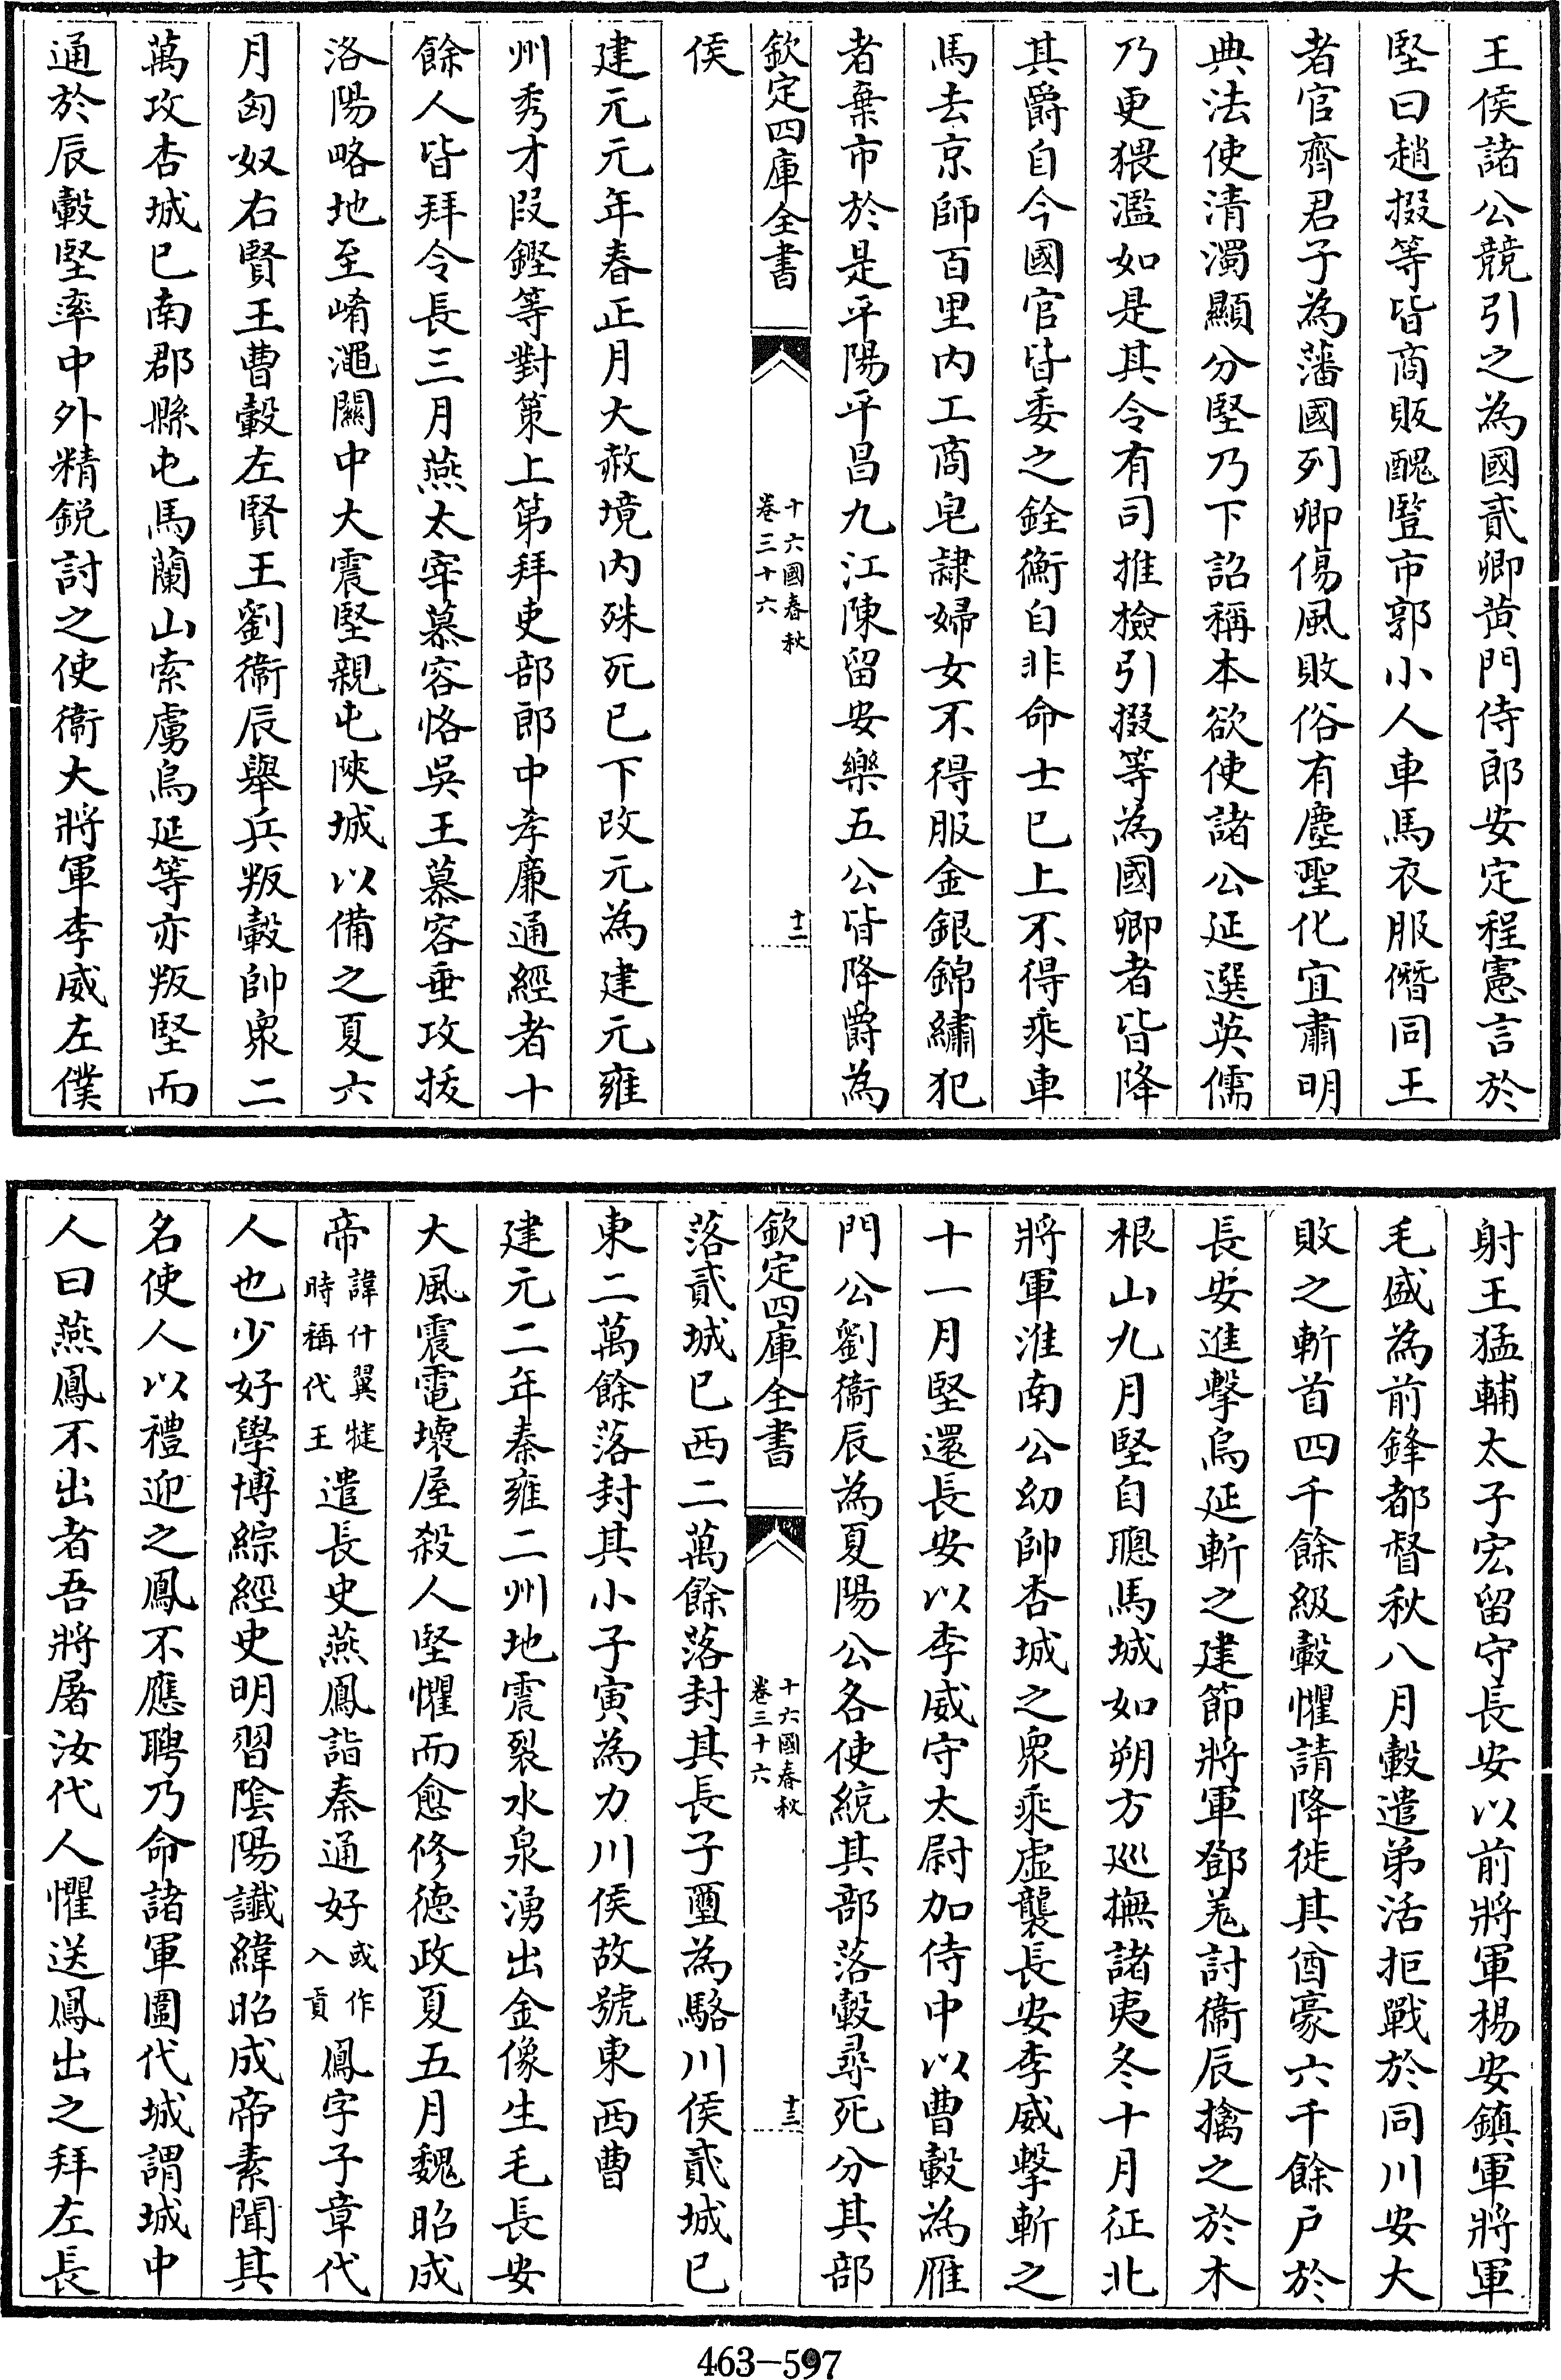 王侯諸公競引之為國貳卿黄門侍郎安定程憲言於
堅曰趙掇等皆商販醜豎市郭小人車馬衣服僭同王
者官齊君子為藩國列卿傷風敗俗有塵聖化宜肅明
典法使清濁顯分堅乃下詔稱本欲使諸公延選英儒
乃更猥濫如是其令有司推檢引掇等為國卿者皆降
其爵自今國官皆委之銓衡自非命士已上不得乘車
馬去京師百里内工商皂隷婦女不得服金銀錦繡犯
者棄市於是平陽平昌九江陳留安樂五公皆降爵為
欽定四庫全書
十六國春秋
卷三十六
十二
侯
建元元年春正月大赦境内殊死已下改元為建元雍
州秀才段鏗等對策上第拜吏部郎中孝廉通經者十
餘人皆拜令長三月燕太宰慕容恪吳王慕容垂攻拔
洛陽略地至崤澠關中大震堅親屯陜城以備之夏六
月匈奴右賢王曹轂左賢王劉衞辰舉兵叛轂帥衆二
萬攻杏城已南郡縣屯馬蘭山索虜烏延等亦叛堅而
通於辰轂堅率中外精銳討之使衞大將軍李威左僕
射王猛輔太子宏留守長安以前將軍楊安鎮軍將軍
毛盛為前鋒都督秋八月轂遣弟活拒戰於同川安大
敗之斬首四千餘級轂懼請降徙其酋豪六千餘户於
長安進擊烏延斬之建節將軍鄧羌討衞辰擒之於木
根山九月堅自驄馬城如朔方巡撫諸夷冬十月征北
將軍淮南公幼帥杏城之衆乘虚襲長安李威擊斬之
十一月堅還長安以李威守太尉加侍中以曹轂為雁
門公劉衞辰為夏陽公各使統其部落轂尋死分其部
欽定四庫全書
十六國春秋
卷三十六
十三
落貳城已西二萬餘落封其長子璽為駱川侯貳城已
東二萬餘落封其小子寅為力川侯故號東西曹
建元二年秦雍二州地震裂水泉湧出金像生毛長安
大風震電壞屋殺人堅懼而愈修德政夏五月魏昭成
帝諱什翼犍時稱代王遣長史燕鳳詣秦通好或作入貢鳳字子章代
人也少好學博綜經史明習陰陽讖緯昭成帝素聞其
名使人以禮迎之鳳不應聘乃命諸軍圍代城謂城中
人曰燕鳳不出者吾將屠汝代人懼送鳳出之拜左長
463-597